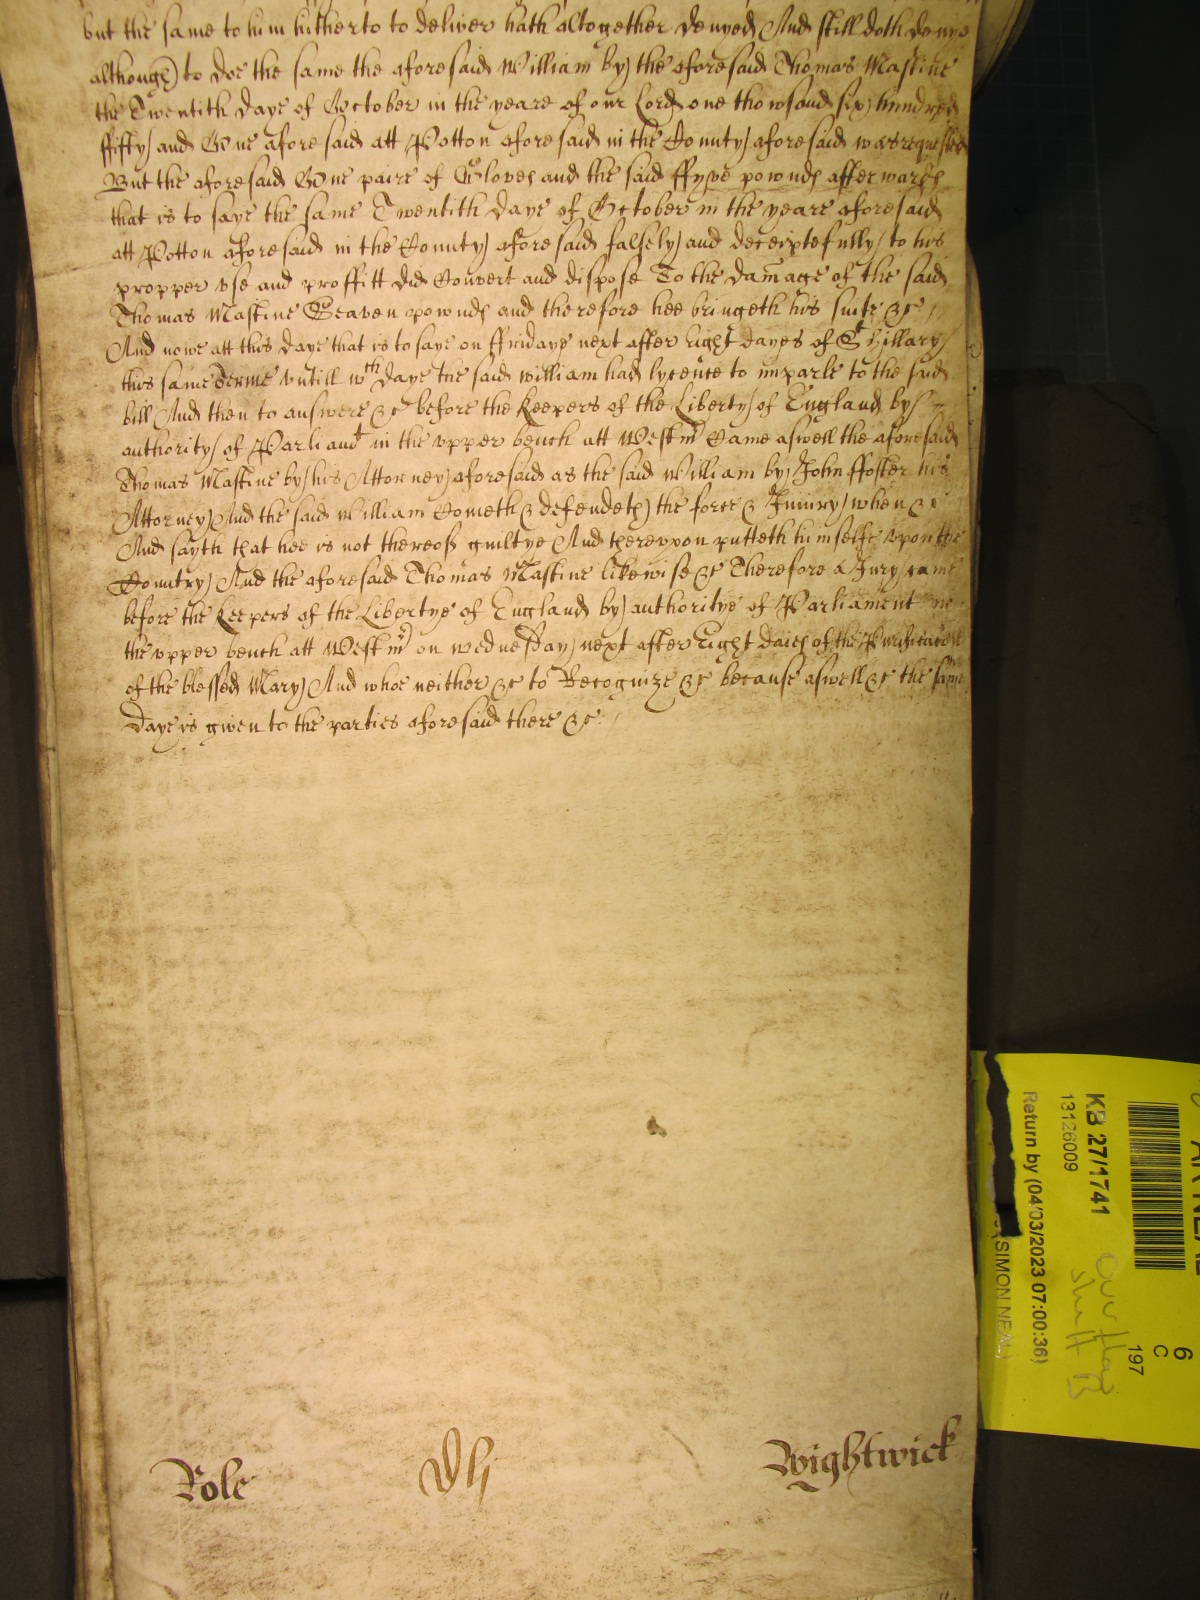 but the same to him hitherto to deliver hath altogether denyed And still doth denye
although to doe the same the aforesaid William by the aforesaid Thomas Mastine
the Twentith daye of October in the yeare of our Lord one thowsand six hundred
ffifty and One aforesaid att Potton aforesaid in the County aforesaid was requested
But the aforesaid One paire of Gloves and the said ffyve pownds afterwards
that is to saye the same Twentith daye of October in the yeare aforesaid
att Potton aforesaid in the County aforesaid falsely and deceiptefully to his
propper vse and proffitt did Convert and dispose To the damage of the said
Thomas Mastine Seaven pownds and therefore hee bringeth his suite &c
And nowe att this daye that is to saye on ffridaye next after Eight dayes of St Hillary
this same Terme vntill wch daye the said william had lycence to imparle to the said
bill And then to answere &c before the Keepers of the Liberty of England by
authority of Parliamt in the vpper bench att Westmr Came aswell the aforesaid
Thomas Mastine by his Attorney aforesaid as the said William by John ffoster his
Attorney And the said William Cometh & defendeth the force & Iniury when &c
And sayth that hee is not thereof guiltye And therevpon putteth himselfe vpon the
Country And the aforesaid Thomas Mastine likewise &c Therefore a Iury came
before the Keepers of the Libertye of England by authoritye of Parliament in
the vpper bench att Westmr on wednesday next after Eight daies of the Purificacon
of the blessed Mary And whoe neither &c to Recognize &c because aswell &c the same
daye is given to the parties aforesaid there &c
Role
Wightwick
KB 27/1741
13126009
Return by (04/03/2023 07:00:36)
(SIMON NEAL)
6
C
197